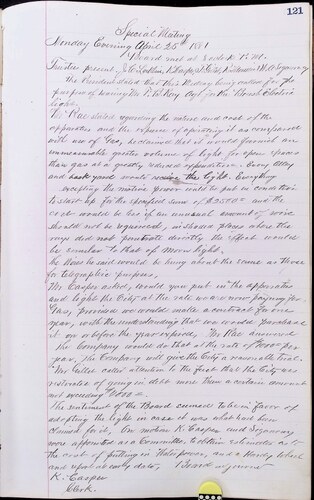 121
Special Meeting
Monday Evening April 25th 1881
Board met at 8 oclock P.M.
Trustees present,
The President stated that this Meeting being called for the
purpose of hearing Mr. Roy Agt for the Brush Electric
Light.
Mr. Roe stated regarding the nature and cost of the
apparatus and the expense of operating it as compared
with use of Gas, he claimed that it would furnish an
immeasurable greater volume of light for open spaces
than gas at a greatly reduced expenditure. Every Alley
and back yard would receive the light. Everything
excepting the motive power could be put in condition
to start up for the specified sum, and the
cost would be less if an unusual amount of wire
should not be required, in shade places where the
rays did not penetrate directly the effect would
be similar to that of Moon light.
he said would be hung about the same as those
for telegraphic purposes.
Mr. Casper asked, would you put in the apparatus
and light the City at the rate we are now paying for
Gas, provided we would make a contract for one
year, with the understanding that we would purchase
it on or before the year expired. Mr. Roe answered
the Company would do that at the rate of per
year, the Company will give the City a reasonable trial.
Mr. called attention to the fact that the City was
restricted of going in debt more than a certain amount
not exceeding
The sentiment of the Board seemed to be in favor of
adopting the light in case it was what had been
claimed for it, On motion K. Casper and
were appointed as a Committee to obtain estimates as to
the cost of putting in Waterpower, and a Hurdy Wheel
and report at early date, Board adjourned
K. Casper
Clerk.